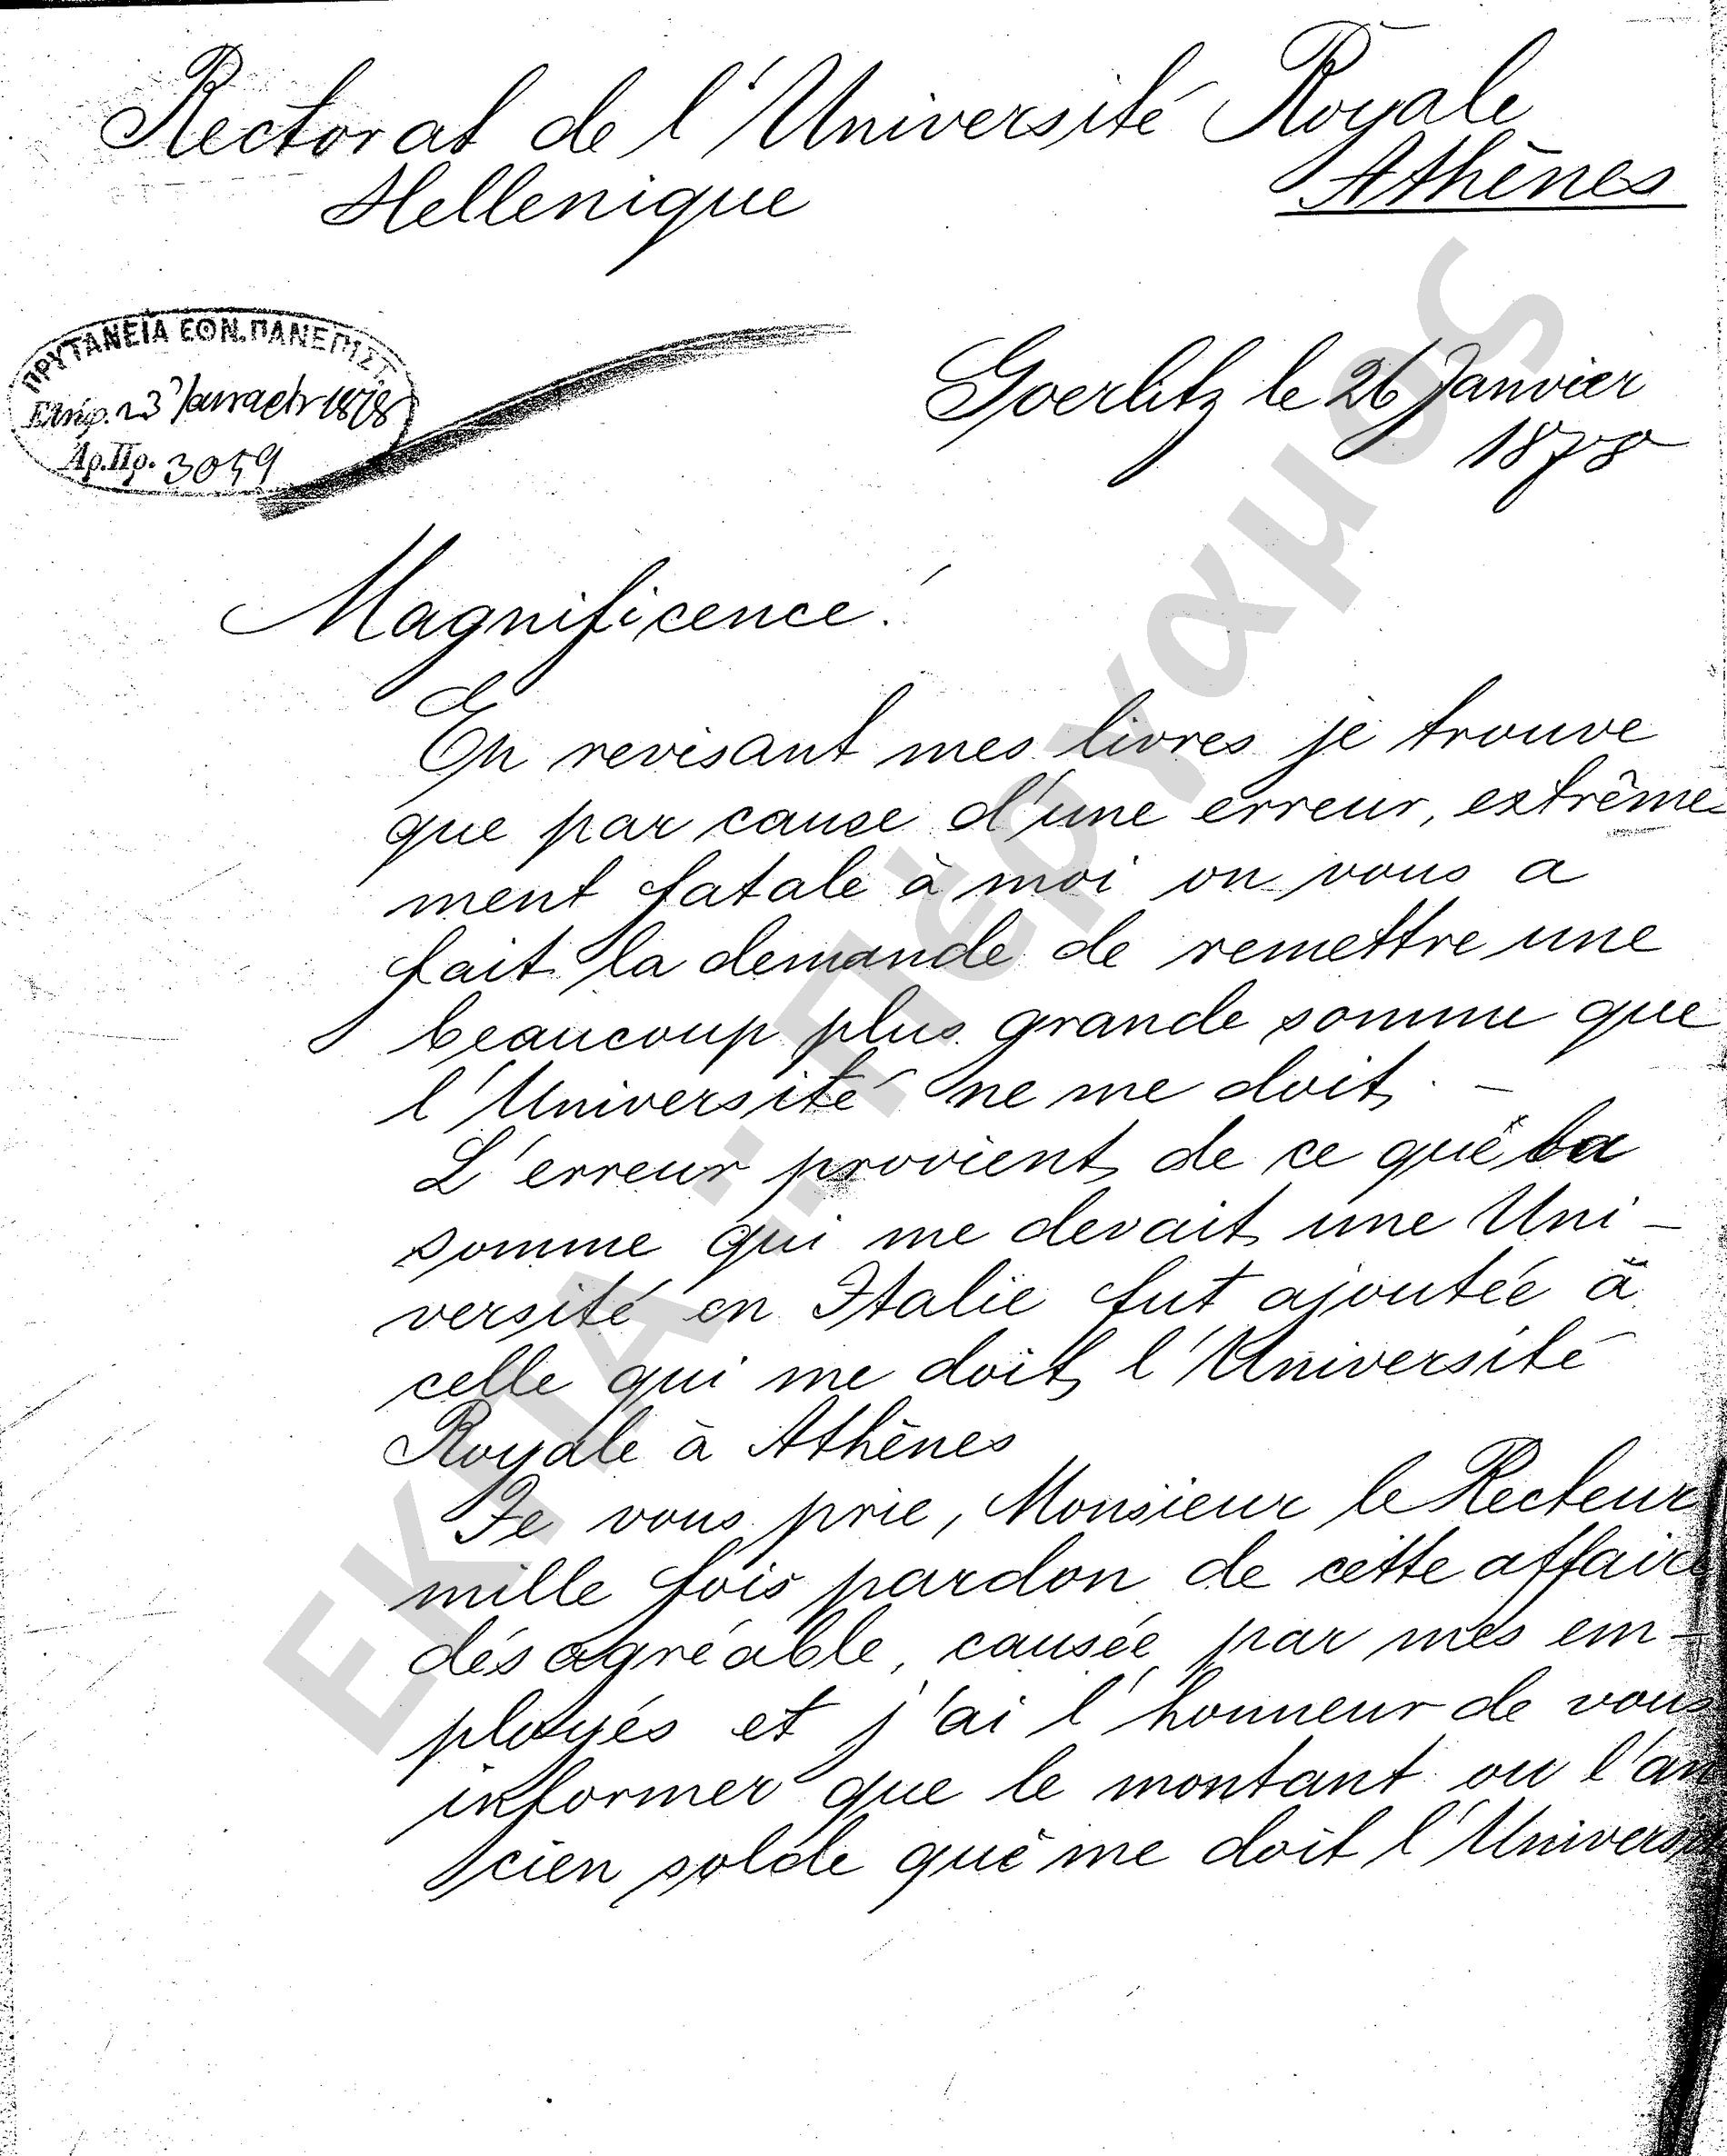 Rectorat de l'Université Royale
Hellenique Athènes
ΠΡΥΤΑΝΕΙΑ ΕΘΝ. ΠΑΝΕΠΙΣΤ.
23 1878
Ἀρ. Πρ. 3059
Goerlitz le 26 Janvier
1878
Magnificence!
En revisant mes livres je trouve
que par cause d'une erreur, extrême
ment fatale à moi on vous a
fait la demande de remettre une
beaucoup plus grande somme que
l'Université ne me doit. —
L'erreur provient de ce que la
somme qui me devait une Uni-
versité en Italie fut ajoutée à
celle qui me doit l'Université
Royale à Athènes
Je vous prie, Monsieur le Recteur
mille fois pardon de cette affaire
désagréable, causée par mes em-
ployés et j'ai l'honneur de vous
informer que le montant ou l'an
cien solde que me doit l'Univers
ΕΚΠΑ: Πέργαμος